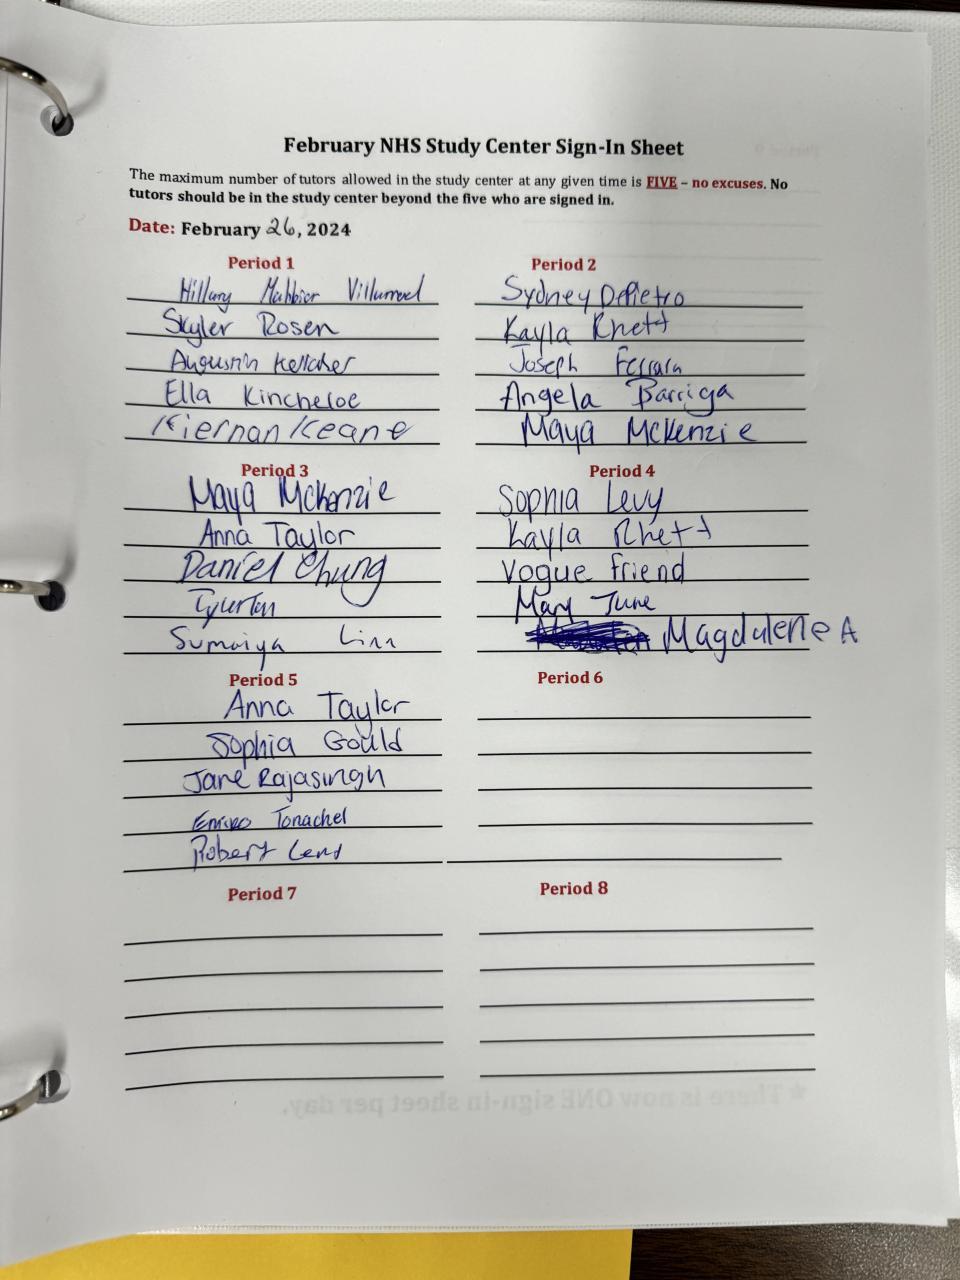 February NHS Study Center Sign-In Sheet
The maximum number of tutors allowed in the study center at any given time is FIVE – no excuses. No
tutors should be in the study center beyond the five who are signed in.
Date: February 26, 2024
Period 1
Hillary
Skyler Rosen
Augustin Kelleher
Ella Kincheloe
Kiernan Keane
Period 2
Sydney DiPietro
Kayla Rhett
Joseph Ferrara
Angela Barriga
Maya McKenzie
Period 3
Maya McKenzie
Anna Taylor
Daniel Chung
Sumaiya
Period 4
Sophia Levy
Kayla Rhett
Vogue Friend
Mary June
Magdalene A
Period 5
Anna Taylor
Sophia Gould
Jane Rajasingh
Tonachel
Robert
Period 6
Period 7
Period 8
★ There is now ONE sign-in sheet per day.